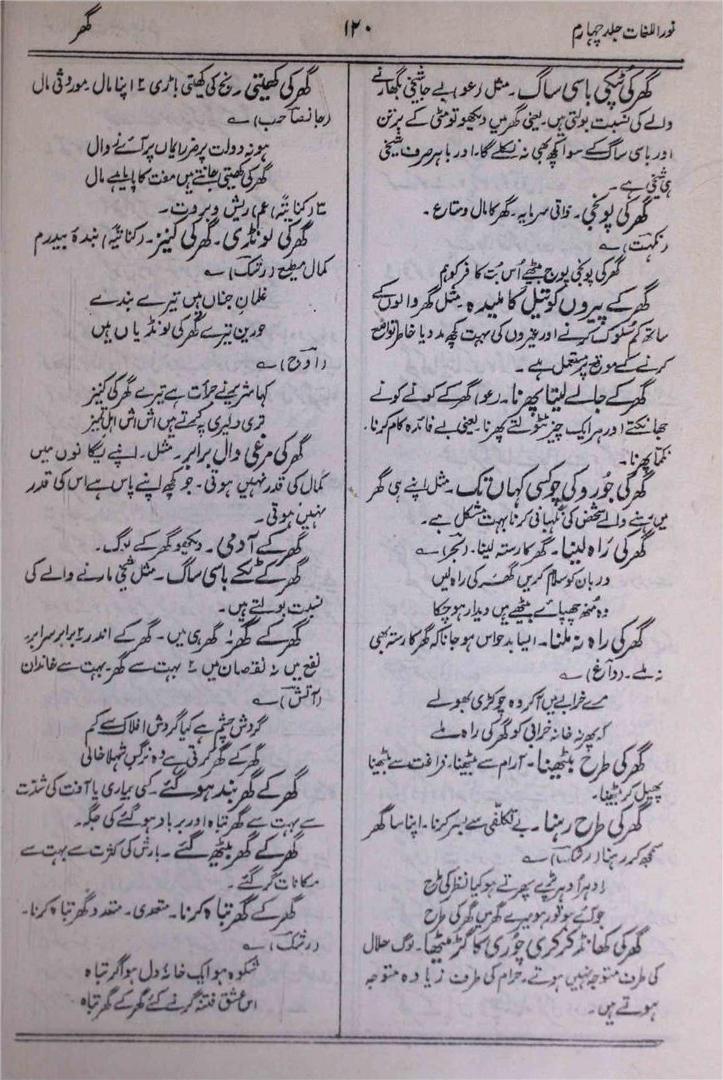 نور اللغات جلد چہارم
۱۲۰
گھر
گھر کی ٹپکی باسی ساگ۔ مثل (عو) بے جا شیخی بگھارنے
والے کی نسبت بولتی ہیں۔ یعنی گھر میں دیکھو تو مٹی کے برتن
اور باسی ساگ کے سوا کچھ بھی نہ نکلے گا، اور باہر صرف شیخی
ہی شیخی ہے۔
گھر کی پونجی۔ ذاتی سرمایہ۔ گھر کا مال و متاع۔
(نکہت) ؎
گھر کی پونجی پوج بیٹھے اُس بُت کافر کو ہم
گھر کے پیروں کو تیل کا ملیدہ۔ مثل گھر والوں کے
ساتھ کم سلوک کرنے اور غیروں کی بہت کچھ مدد یا خاطر تواضع
کرنے کے موقع پر مستعمل ہے۔
گھر کے جالے لیتا پھرنا۔ (عو) گھر کے کونے کونے
جھانکتے اور ہر ایک چیز ٹٹولتے پھرنا۔ یعنی بے فائدہ کام کرنا۔
نکما پھرنا۔
گھر کی جورو کی چوکسی کہاں تک۔ مثل اپنے ہی گھر
میں رہنے والے شخص کی نگہبانی کرنا بہت مشکل ہے۔
گھر کی راہ لینا۔ گھر کا رستہ لینا۔ (بحر) ؎
دربان کو سلام کریں گھر کی راہ لیں
وہ منھ چھپائے بیٹھے ہیں دیدار ہو چکا
گھر کی راہ نہ ملنا۔ ایسا بدحواس ہو جانا کہ گھر کا رستہ بھی
نہ ملے۔ (داغ) ؎
مرے خرابے میں آکر وہ چوکڑی بھولے
کہ پھر نہ خانہ خرابی کو گھر کی راہ ملے
گھر کی طرح بیٹھنا۔ آرام سے بیٹھنا۔ فراغت سے بیٹھنا
پھیل کر بیٹھنا۔
گھر کی طرح رہنا۔ بے تکلفی سے بسر کرنا۔ اپنا سا گھر
سمجھ کر رہنا (رشک) ؎
ادہر اُدہر پڑے پھرتے ہو کیا نظر کی طرح
جو آئے ہو تو رہو میرے گھر میں گھر کی طرح
گھر کی کھانڈ کرکری چوری کا گڑ میٹھا۔ لوگ حلال
کی طرف متوجہ نہیں ہوتے۔ حرام کی طرف زیادہ متوجہ
ہوتے ہیں۔
گھر کی کھیتی۔ نج کی کھیتی باڑی ۲ اپنا مال۔ موروثی مال
(جانصاحب) ؎
ہو نہ دولت پر ضرایماں پر آئے زوال
گھر کی کھیتی جانتے ہیں مفت کا پایا ہے مال
۳ (کنایۃً) (عم) ریش و بروت۔
گھر کی لونڈی۔ گھر کی کنیز۔ (کنایۃً) بندہ بیدرم
کمال مطیع (رشک) ؎
غلمانِ جناں ہیں تیرے بندے
حوریں تیرے گھر کی لونڈیاں ہیں
(اوج) ؎
کہا شریر نے جرأت ہے تیرے گھر کی کنیز
تری دلیری پہ کہتے ہیں اش اش اہل تمیز
گھر کی مرغی دال برابر۔ مثل۔ اپنے یگانوں میں
کمال کی قدر نہیں ہوتی۔ جو کچھ اپنے پاس ہے اس کی قدر
نہیں ہوتی۔
گھر کے آدمی۔ دیکھو گھر کے لوگ۔
گھر کے ٹپکے باسی ساگ۔ مثل شیخی مارنے والے کی
نسبت بولتے ہیں۔
گھر کے گھر۔ گھر ہی میں۔ گھر کے اندر ۲ برابر سرابر۔
نفع میں نہ نقصان میں ۳ بہت سے گھر۔ بہت سے خاندان
(آتش) ؎
گردش چشم ہے کیا گردش افلاک سے کم
گھر کے گھر کرتی ہے وہ نرگس شہلا خالی
گھر کے گھر بند ہو گئے۔ کسی بیماری یا آفت کی شدت
سے بہت سے گھر تباہ اور برباد ہو گئے کی جگہ۔
گھر کے گھر بیٹھ گئے۔ بارش کی کثرت سے بہت سے
مکانات گر گئے۔
گھر کے گھر تباہ کرنا۔ متعدی۔ متعدد گھر تباہ کرنا۔
(رشک) ؎
شکوہ ہو ایک خانۂ دل ہو اگر تباہ
اس عشق فتنہ گر نے کئے گھر کے گھر تباہ